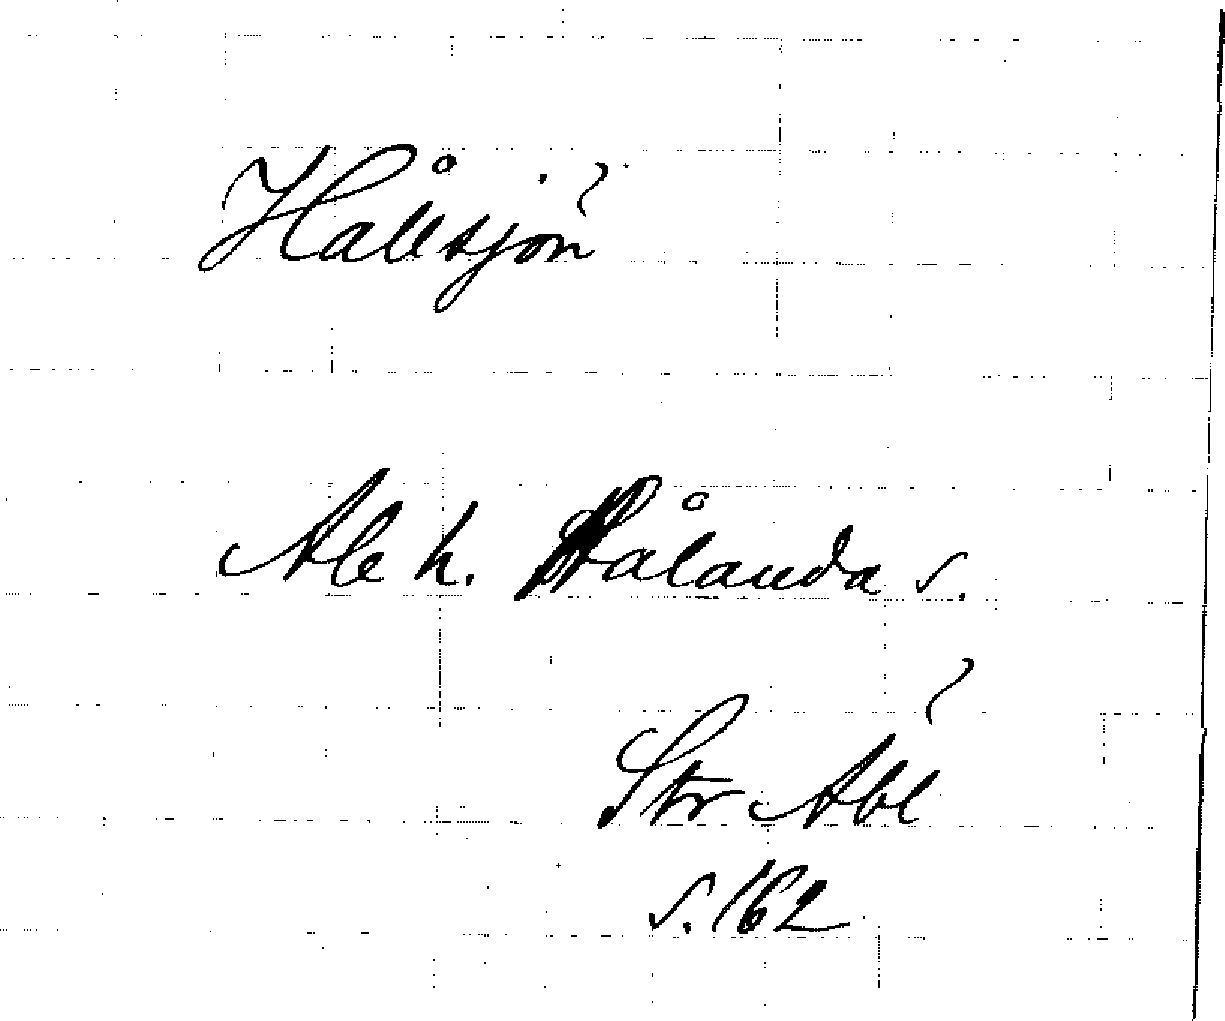 Hållsjön
Ale h. Hålanda s.
Str Abl
s. 162